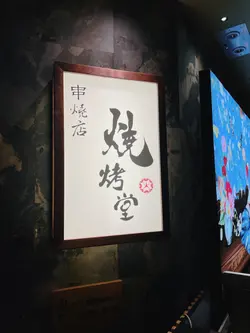 串燒店
燒烤堂